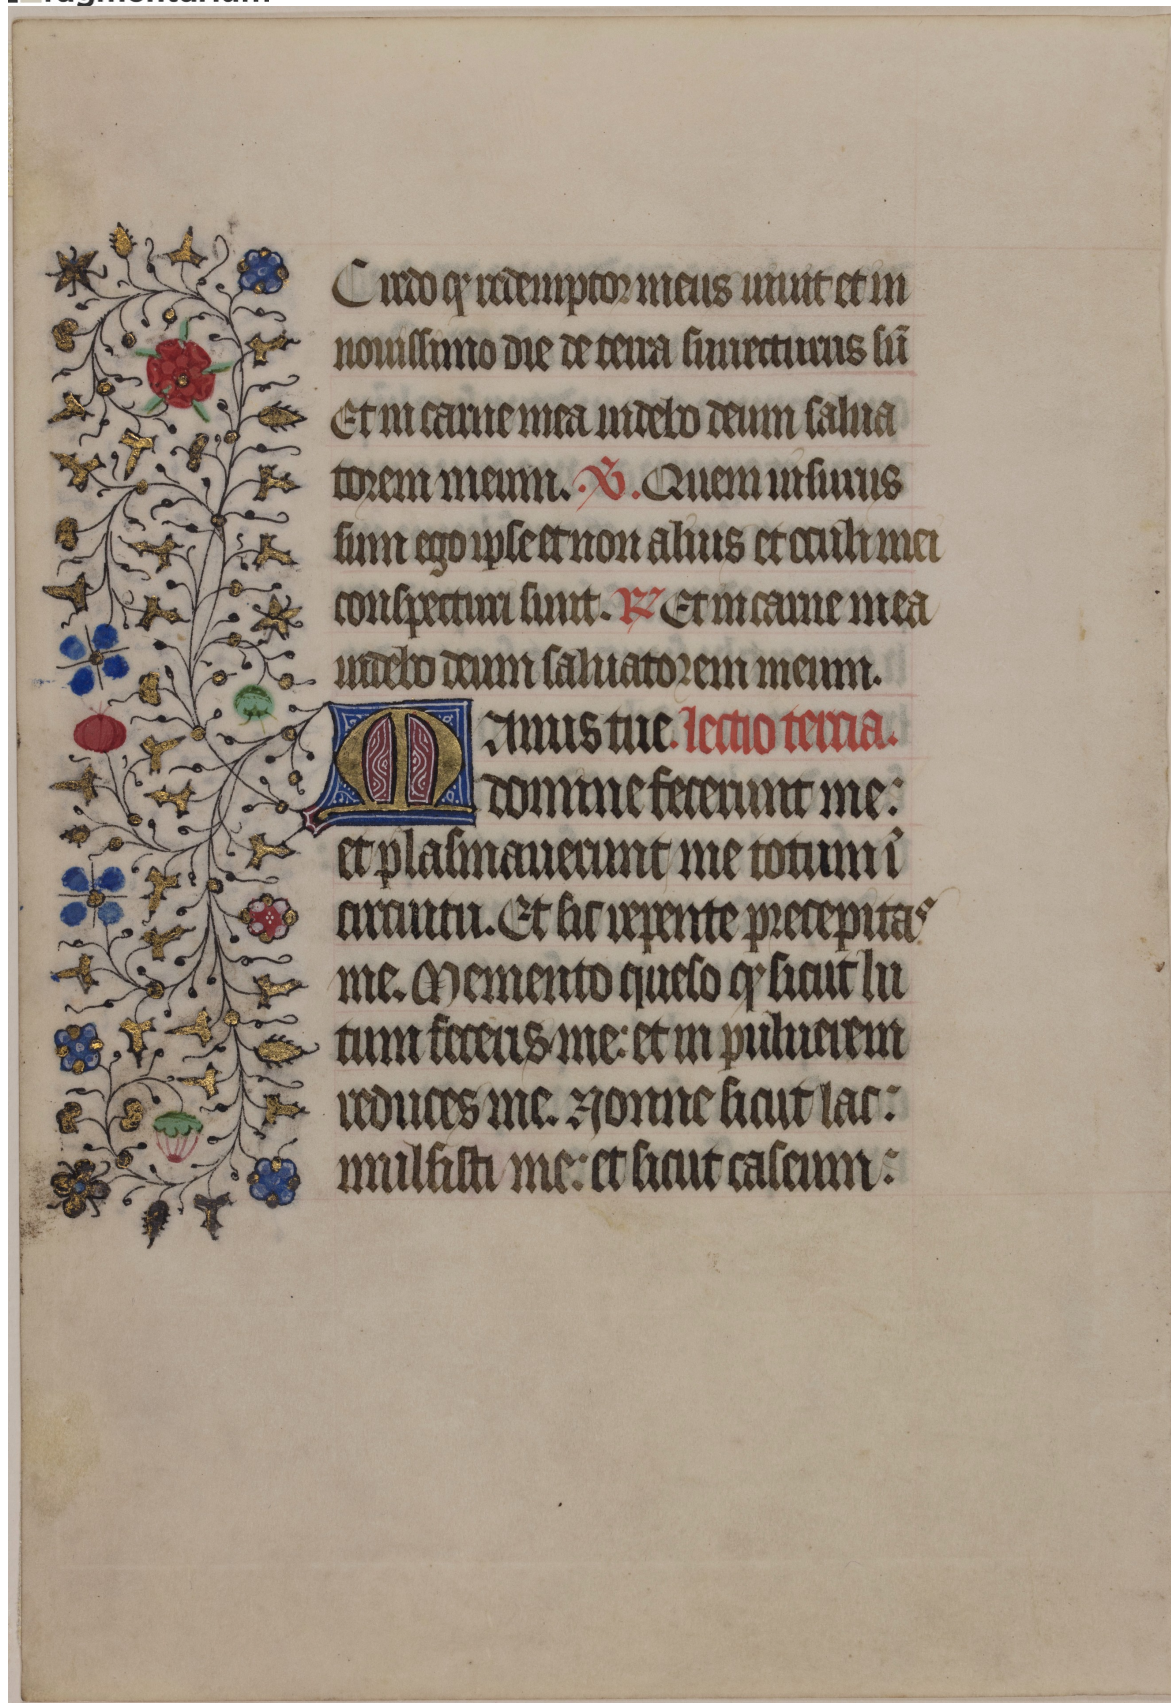 fragmentarium
Credo qͥ redemptor meus uiuit et in
nouissimo die de terra surrecturus sū
Et in carne mea uidebo deum salua
torem meum. ℣. Quem uisurus
sum ego ipse et non alius et oculi mei
conspecturi sunt. ℟ Et in carne mea
uidebo deum saluatorem meum.
Manus tue. lectio tercia.
domine fecerunt me:
et plasmauerunt me totum ī
circuitu. Et sic repente precepitas
me. Memento queso qͥ sicut lu
tum feceris me: et in puluerem
reduces me. Nonne sicut lac:
mulsisti me: et sicut caseum: